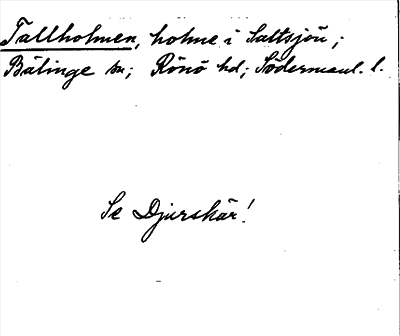 Tallholmen, holme i Saltsjön;
Bälinge sn; Rönö hd; Södermanl. l.
Se Djurskär!